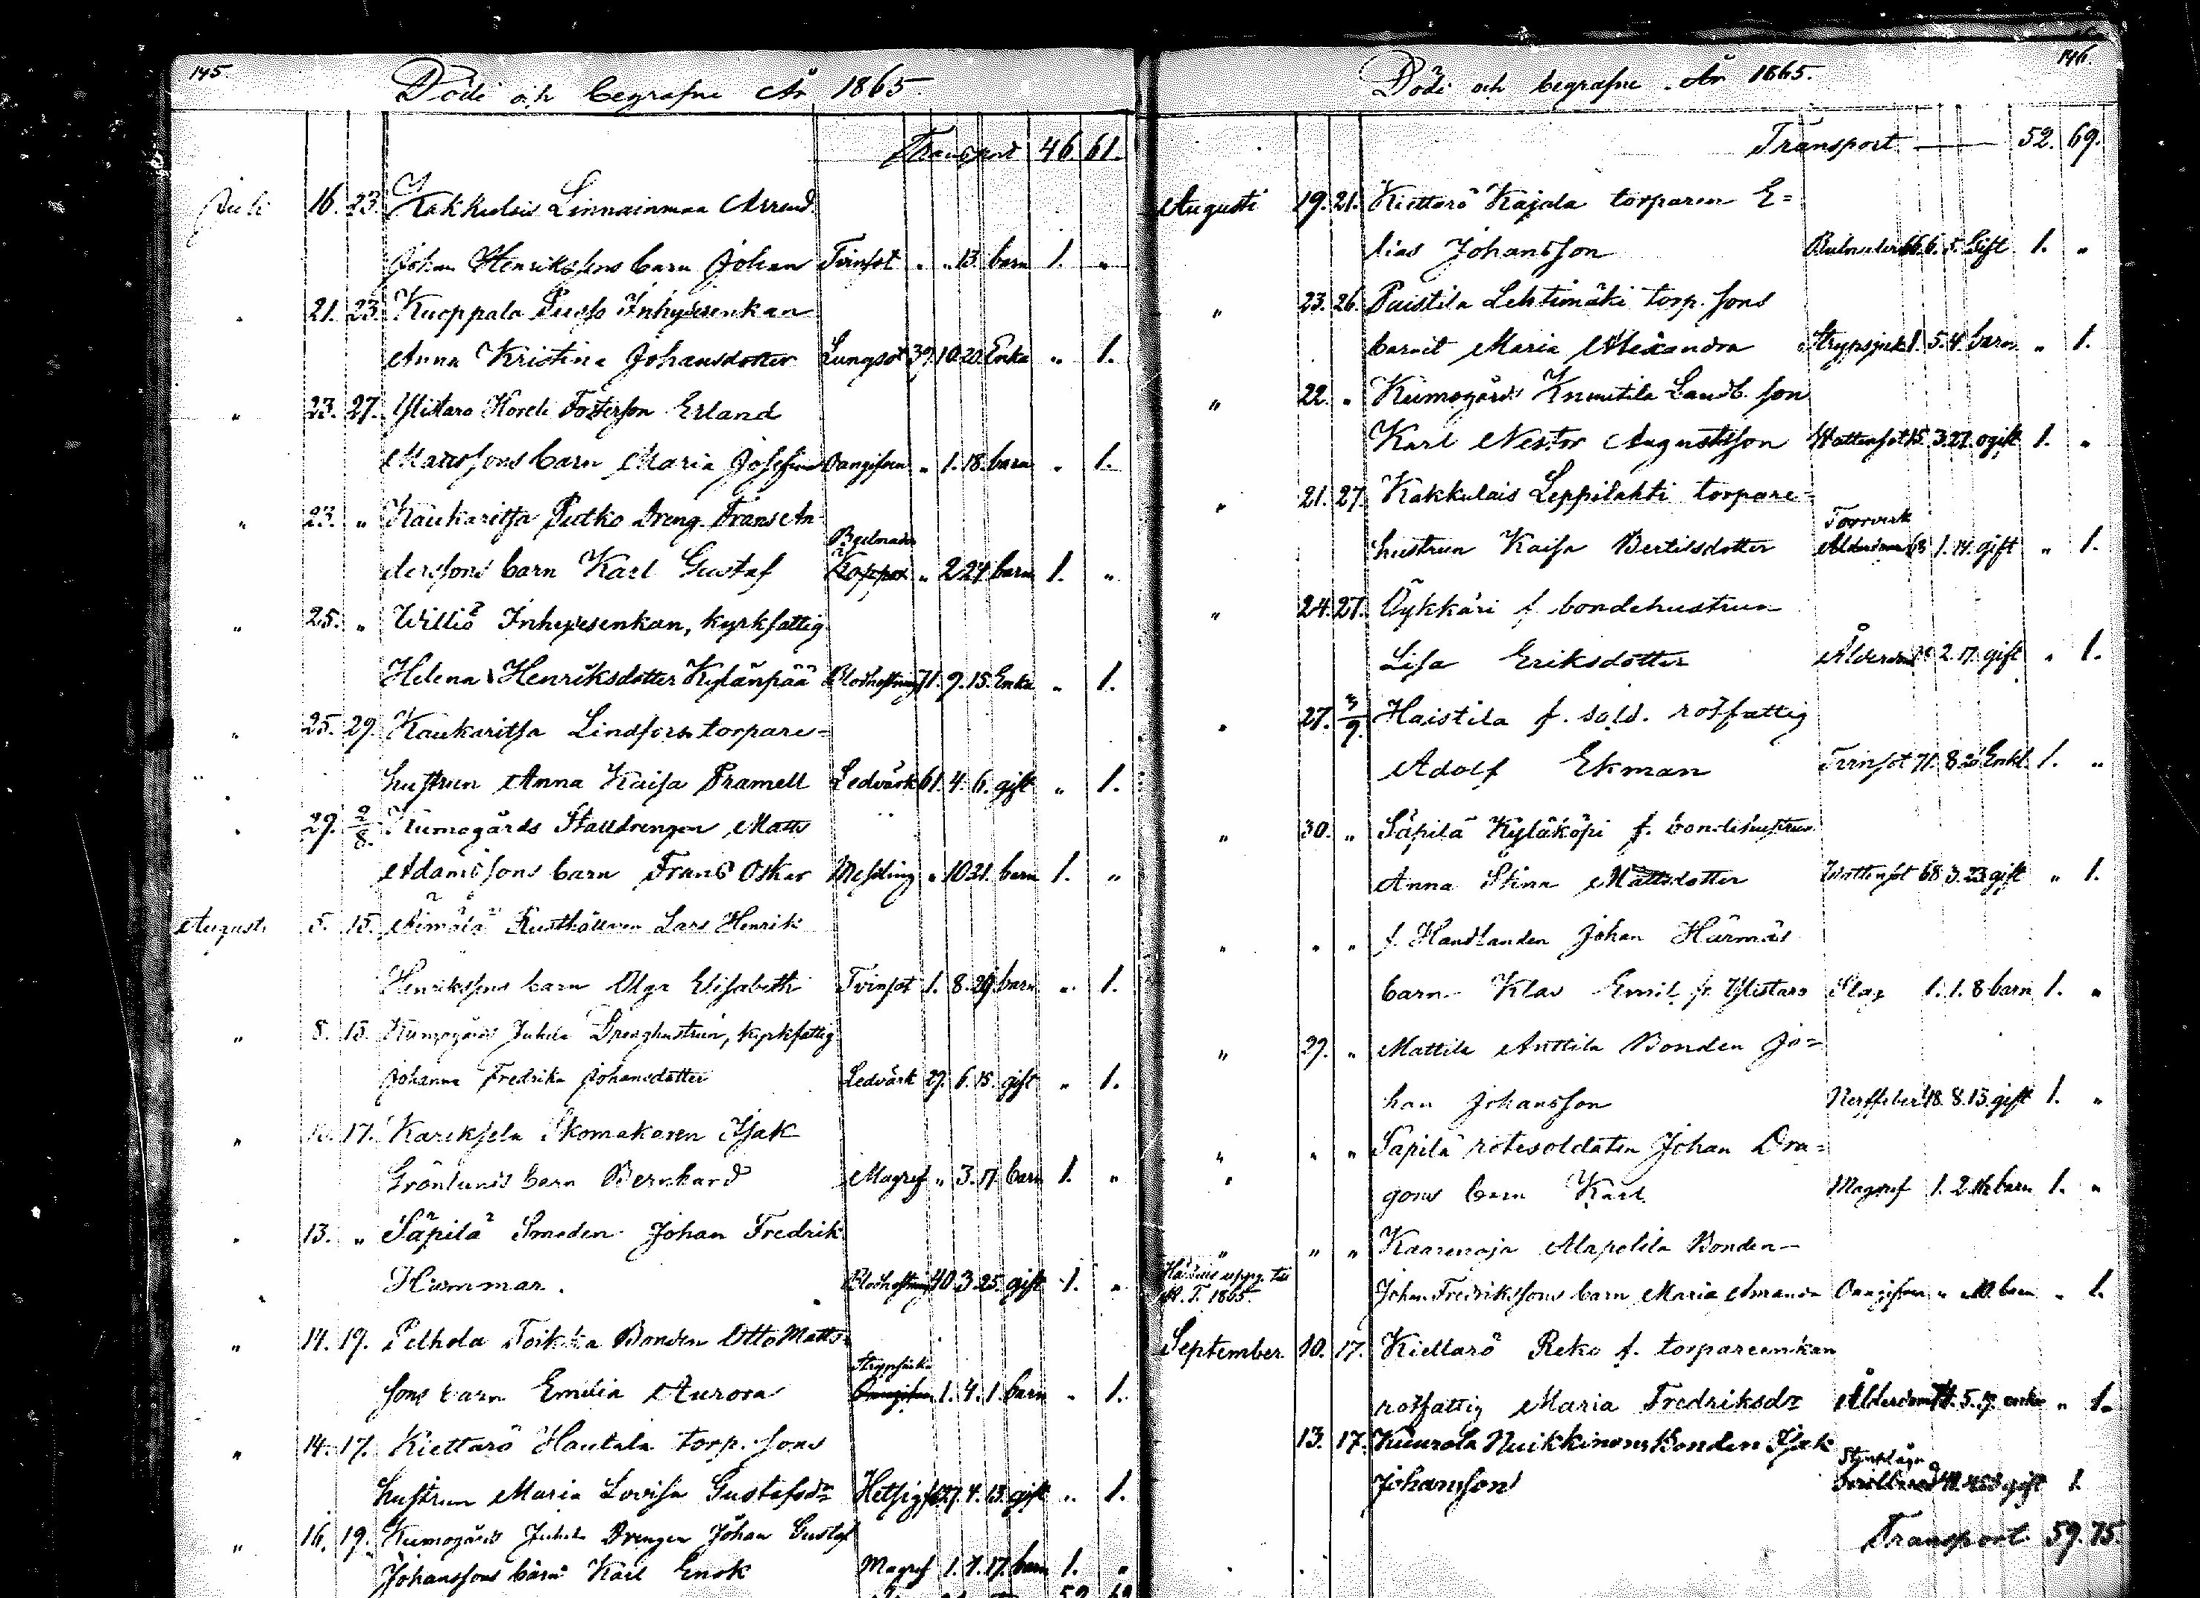 145.
Döde och begrafne År 1865.
Transport 46 61.
Juli 16. 23. Kakkulais Linnainmaa Arrend.
Johan Henrikssons barn Johan Tvinsot " " 13. barn 1. "
" 21. 23. Kuoppala Pusso Inhysesenkan
Anna Kristina Johansdotter Lungsot 39. 10. 20. Enka " 1.
" 23. 27. Ylistaro Koreli Fosterson Erland
Matssons barn Maria Josefina Oangifven " 1. 18. barn " 1.
" 23. " Kaukaritsa Putko Dreng Frans An-
derssons barn Karl Gustaf Koppor " 2. 24. barn 1. "
" 25. " Williö Inhysesenkan, kyrkfattig
Helena Henriksdotter Kylänpää Blodhostning 71. 9. 15. Enka " 1.
" 25. 29. Kaukaritsa Lindfors torpare=
hustrun Anna Kaisa Pramell Ledvärk 61. 4. 6. gift " 1.
" 29. 2/8. Kumogårds Stalldrengen Matts
Adamssons barn Frans Oskar Messling " 10 21. barn 1. "
Augusti 5. 15. Äimälä Rusthållaren Lars Henrik
Henrikssons barn Olga Elisabeth Tvinsot 1. 8. 29. barn " 1.
" 8. 15. Kumogårds Juhela Drenghustrun, kyrkfattig
Johanna Fredrika Johansdotter Ledvärk 29. 6. 15. gift " 1.
" 17. Kareksela Skomakaren Isak
Grönlunds barn Bernhard Magref " 3. 17. barn 1. "
" 13. " Säpilä Smeden Johan Fredrik
Hammar. Blodhostning 40. 3. 25. gift 1. "
" 14. 19. Pelhola Toikka Bonden Otto Matts-
Strypsjuka
sons barn Emilia Aurora Oangifven 1. 4. 1. barn " 1.
" 14. 17. Kiettarö Hautala torp. sons
hustrun Maria Lovisa Gustafsdr Hetsig 27. 4. 13. gift " 1.
" 16. 19. Kumogårds Juhela Drengen Johan Gustaf
Johanssons barn Karl Enok Magref 1. 4. 17. barn 1. "
52 69
146.
Döde och begrafne År 1865.
Transport 52. 69.
Augusti 19. 21. Kiettarö Kajala torparen E=
lias Johansson 66. 6. 5. Gift 1. "
" 23. 26. Paistila Lehtimäki torp. sons
barnet Maria Alexandra Strypsjuk 1. 5. 4. barn " 1.
" 22. " Kumogårds Knuutila Landb. son
Karl Nestor Augustsson Wattensot 15. 3. 27. ogift 1. "
" 21. 27. Kakkulais Leppilahti torpare=
Torrverk
hustrun Kaisa Bertilsdotter Ålderdom 68 1. 14. gift " 1.
" 24. 27. Öykkäri f. bondehustrun
Lisa Eriksdotter Ålderdom 2. 17. gift " 1.
" 27. 3/9. Haistila f. sold. rotfattig
Adolf Ekman Tvinsot 71. 8. 26 Enkl. 1. "
" 30. " Säpilä Kyläköpi f. bondehustrun
Anna Stina Mattsdotter Wattensot 68 3. 23. gift " 1.
" " " f. Handlanden Johan Härmäs
barn Klas Emil fr. Ylistaro Slag 1. 1. 8 barn 1. "
" 29. " Mattila Anttila Bonden Jo=
han Johansson Nerffeber 48. 8. 13. gift 1. "
" " " Säpilä rotesoldaten Johan Dra=
" gons barn Karl Magref 1. 2. 16 barn 1. "
" " " Kaarenoja Alapolila Bonden
Härtills uppg. till
A. T. 1865.
Johan Fredrikssons barn Maria Amanda Oangifven " 10. barn " 1.
September 10. 17. Kiettarö Reko f. torpareenkan
rotfattig Maria Fredriksdr Ålderdom 74. 5. 17. enka " 1.
13. 17. Kuurola Nuikkinens Bonden Isak
Johansson gift 1
Transport 59. 75.